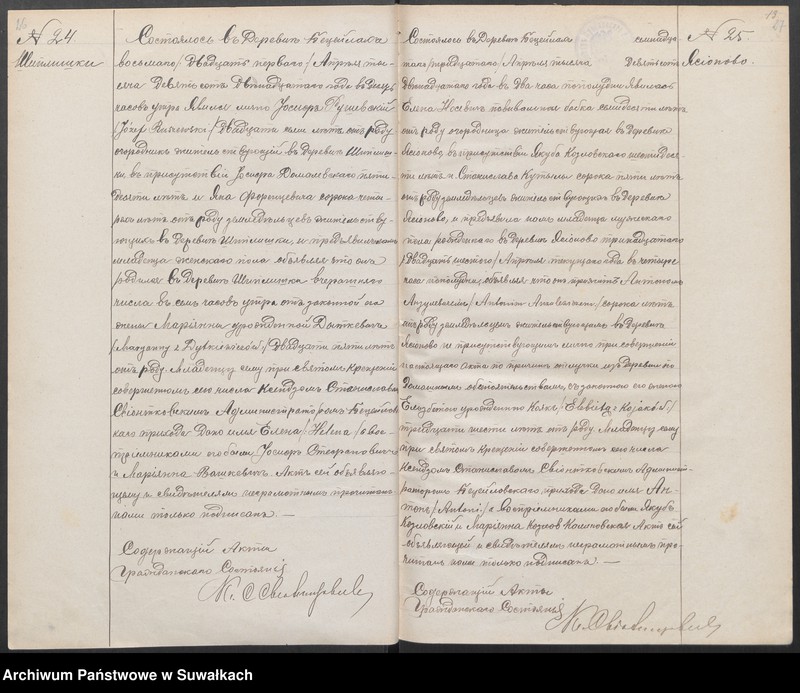 № 24
Шиплишки
Состоялось въ деревнѣ Бецейлахъ
восьмаго /двадцать перваго/ Апрѣля ты-
сяча девять сотъ двѣнадцатаго года въ
часовъ утра. Явился лично Іосифъ
/Józef двадцати семи лѣтъ отъ роду
огородникъ жительствующій въ деревнѣ Шиплиш-
ки въ присутствіи Іосифа Домалевскаго пяти-
десяти лѣтъ и Яна сорока четы-
рехъ лѣтъ отъ роду земледѣльцевъ жительствую-
щихъ въ деревнѣ Шиплишки, и предъявилъ намъ
младенца женскаго пола объявляя что онъ
родился въ деревнѣ Шиплишки вчерашняго
числа въ семь часовъ утра отъ законной его
жены Маріанны урожденной Дыткевичъ
/Maryanny z двадцати пяти лѣтъ
отъ роду. Младенцу сему при святомъ крещеніи
совершенномъ сего числа Ксендзомъ Станиславомъ
Свіонтковскимъ Администраторомъ Бецейлов-
скаго прихода дано имя Елена /Helena/ а вос-
пріемниками его были Іосифъ Стефановичъ
и Маріанна Вашкевичъ. Актъ сей объявляю-
щему и свидѣтелямъ неграмотнымъ прочитанъ
нами только подписанъ. —
Содержащій Акты
Гражданскаго Состоянія
К. С.
13
27
№ 25.
Ясіоново.
Состоялось въ деревнѣ Бецейлахъ семнадца-
таго /тридцатаго/ Апрѣля тысяча девятьсотъ
двѣнадцатаго года въ два часа пополудни. Явилась
Елена повивальная бабка семидесяти лѣтъ
отъ роду огородница жительствующая въ деревнѣ
Ясіоново въ присутствіи Якуба Козловскаго шестидеся-
ти лѣтъ и Станислава сорока пяти лѣтъ
отъ роду земледѣльцевъ жительствующихъ въ деревнѣ
Ясіоново, и предъявила намъ младенца мужескаго
пола рожденнаго въ деревнѣ Ясіоново тринадцатаго
/двадцать шестаго/ Апрѣля текущаго года въ четыре
часа пополудни, объявляя что онъ прожитъ Антономъ
/Antonim сорока лѣтъ
отъ роду земледѣльцемъ жительствующимъ въ деревнѣ
Ясіоново не присутствующимъ лично при совершеніи
настоящаго Акта по причинѣ отлучки изъ деревни по
домашнимъ обстоятельствамъ, съ законною его женою
Елжбетою урожденною /Elżbietą z
тридцати шести лѣтъ отъ роду. Младенцу сему
при святомъ крещеніи совершенномъ сего числа
Ксендзомъ Станиславомъ Свіонтковскимъ Админист-
раторомъ Бецейловскаго прихода дано имя Ан-
тонъ /Antoni/ а воспріемниками его были Якубъ
Козловскій и Маріанна Актъ сей
объявляющей и свидѣтелямъ неграмотнымъ про-
читанъ нами только подписанъ. —
Содержащій Акты
Гражданскаго Состоянія
К. С.
Archiwum Państwowe w Suwałkach